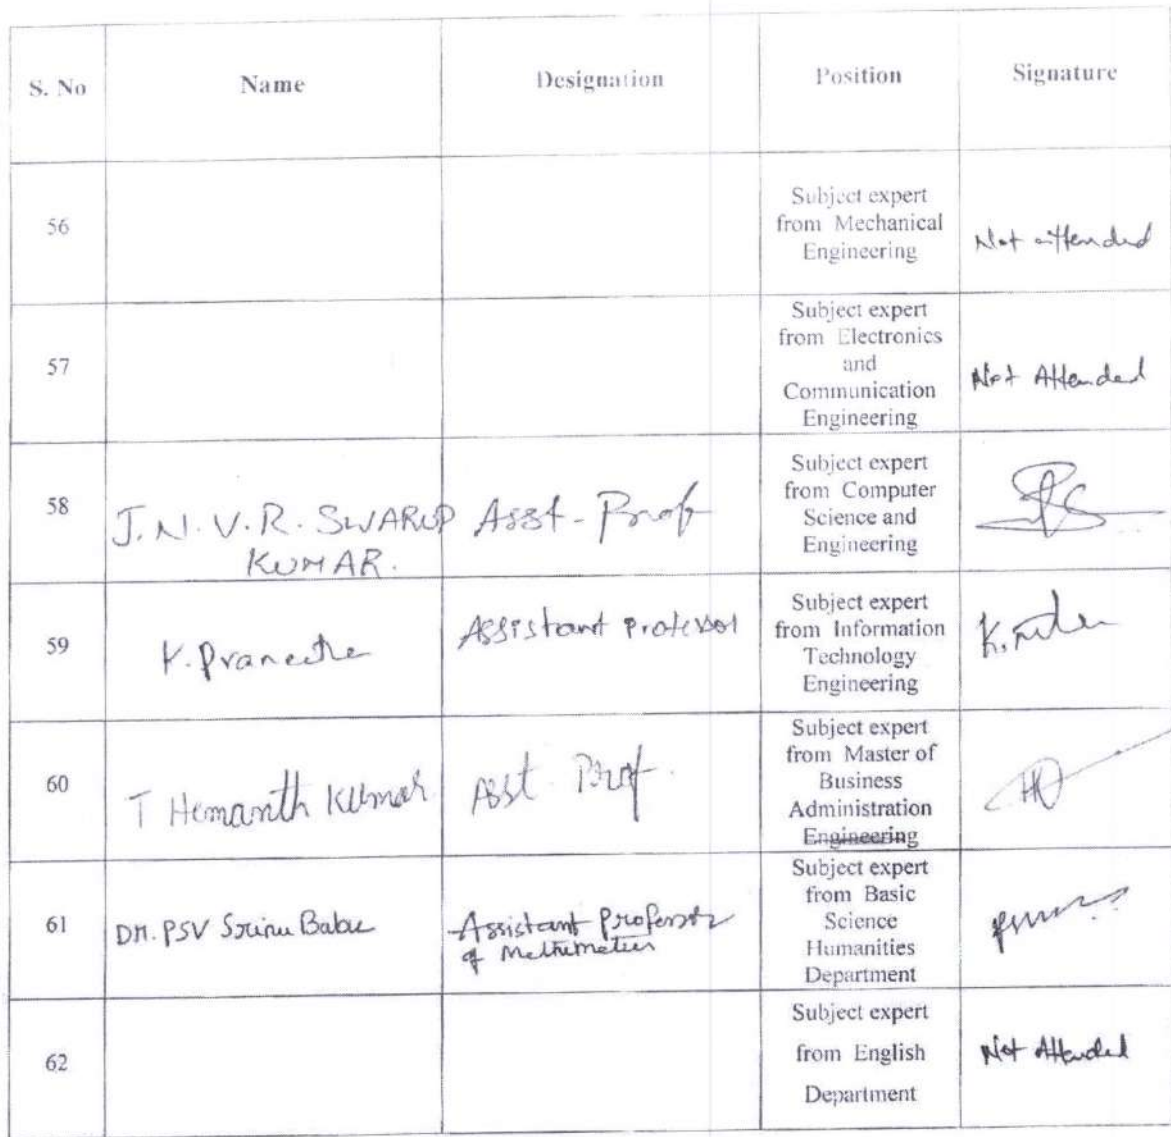 S. No Name Designation Position Signature
56
Subject expert
from Mechanical
Engineering
Not attended
57
Subject expert
from Electronics
and
Communication
Engineering
Not Attended
58
J.N.V.R. SWARUP
KUMAR.
Asst. Prof
Subject expert
from Computer
Science and
Engineering
59
K. Praneetha
Assistant professor
Subject expert
from Information
Technology
Engineering
60
T Hemanth Kumar
Asst. Prof.
Subject expert
from Master of
Business
Administration
Engineering
61
DR. PSV Srinu Babu
Assistant Professor
of Mathematics
Subject expert
from Basic
Science
Humanities
Department
62
Subject expert
from English
Department
Not Attended